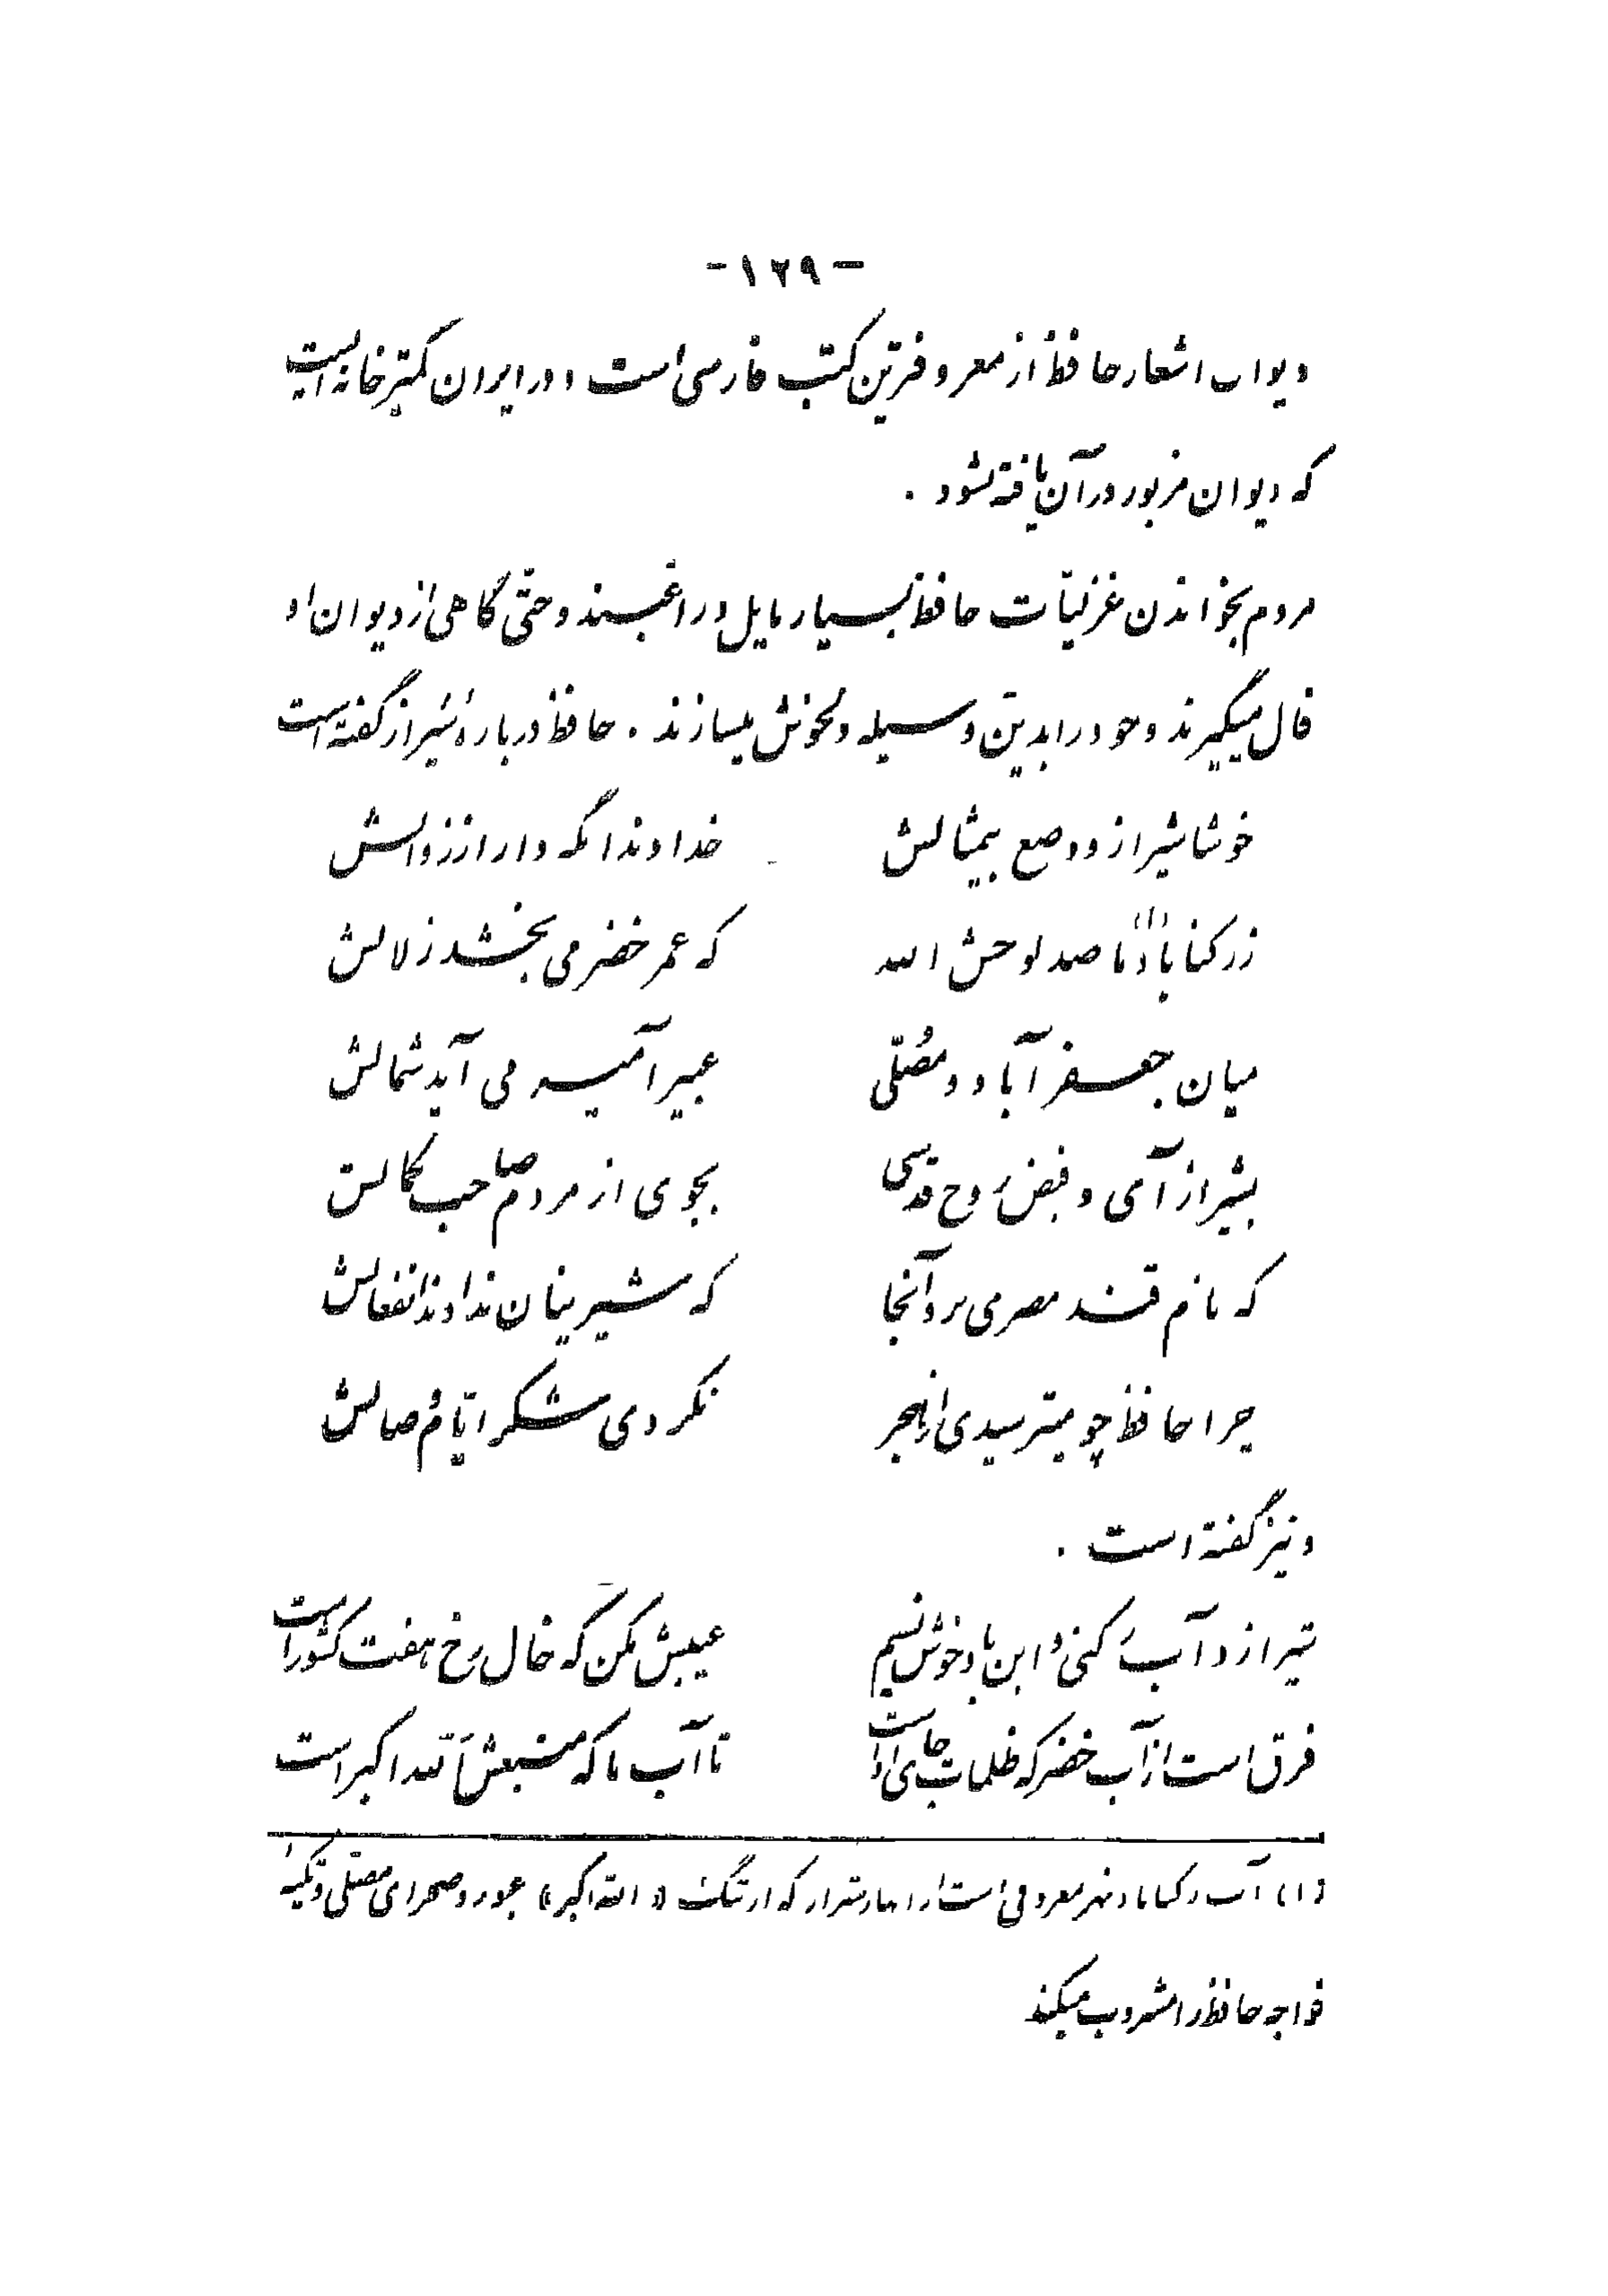 -۱۲۹-
دیوان اشعار حافظ از معروفترین کتب فارسی است و در ایران کمتر خانه ایست
که دیوان مزبور در آن یافته نشود .
مردم بخواندن غزلیّات حافظ بسیار مایل و راغبند و حتّی گاهی از دیوان او
فال میگیرند و خود را بدین وسیله دلخوش میسازند . حافظ دربارهٔ شیراز گفته است
خوشا شیراز و وضع بیمثالش خداوندا نگه دار از زوالش
ز رکناباد(۱) ما صد لوحش الله که عمر خضر می بخشد زلالش
میان جعفر آباد و مُصَلّی عبیر آمیز می آید شمالش
بشیراز آی و فیض رُوح قدسی بجوی از مردم صاحب کمالش
که نام قند مصری برد آنجا که شیرینان ندادند انفعالش
چرا حافظ چو میترسیدی از هجر نکردی شکر ایّام وصالش
و نیز گفته است .
شیراز و آب رُکنی و این باد خوش نسیم عیبش مکن که خال رخ هفت کشور است
فرق است از آب خضر که ظلمات جای اوست تا آب ما که منبعش اَلله اکبر است
(۱) آب رکناباد نهر معروفی است از انهار شیراز که از تنگ «الله اکبر» عبور و صحرای مصلّی و تکیهٔ
خواجه حافظ را مشروب میکند